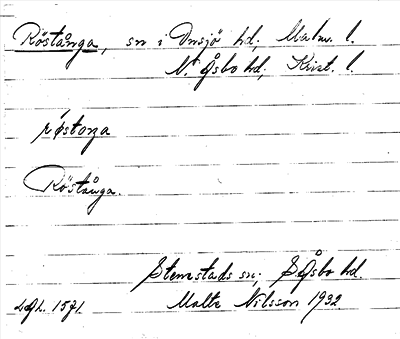 Röstånga, sn i Onsjö hd, Malm. l.
N. Åsbo hd, Krist. l.
røstoŋa
Röstånga.
Stenestads sn; S Åsbo hd.
Malte Nilsson 1932